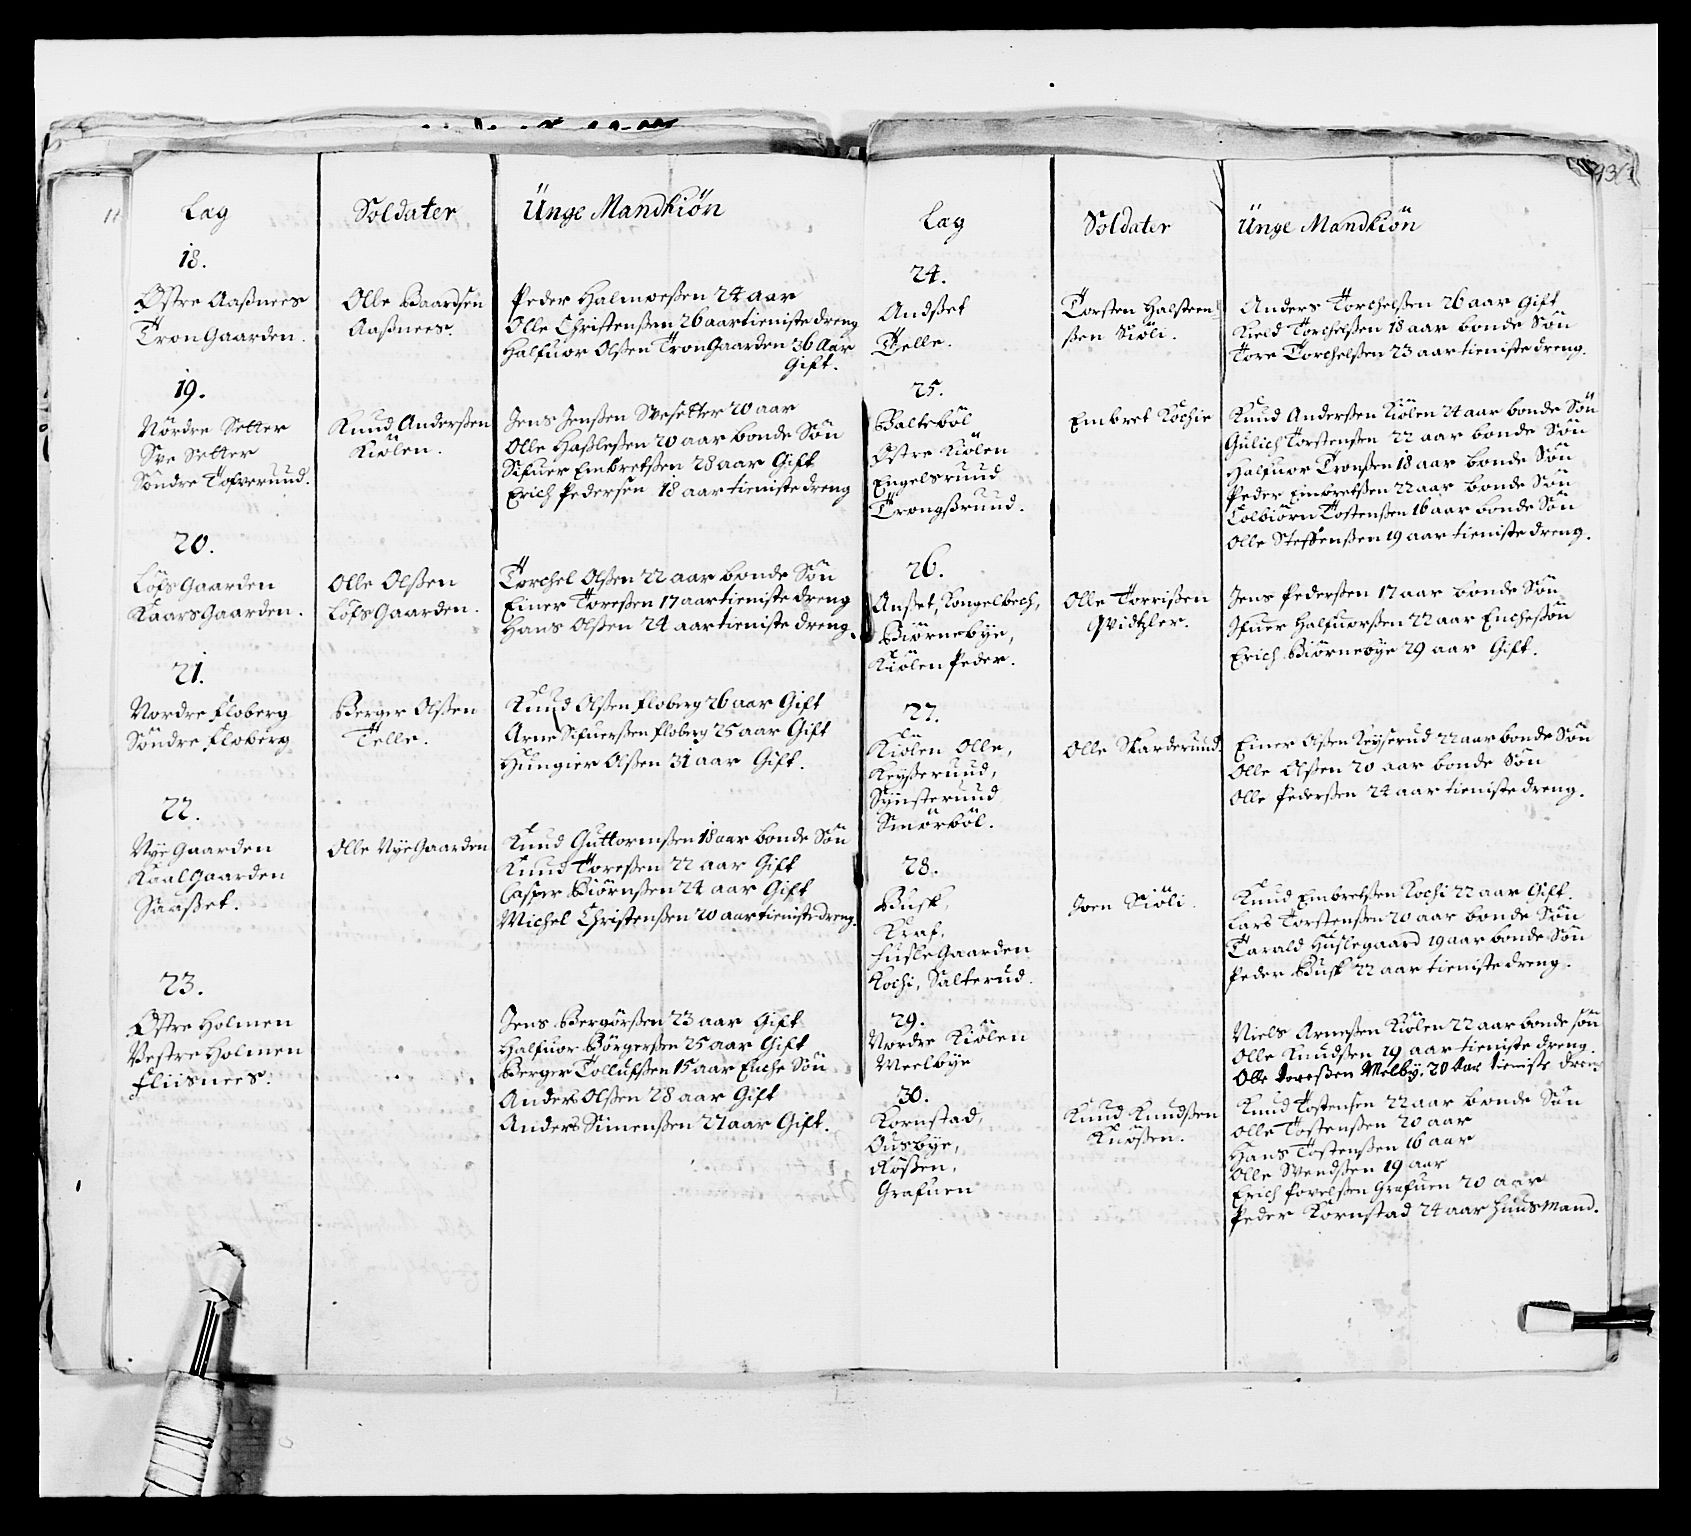 Læg
Soldater
Ünge Mandkiön
18.
Østre Aaßnees
TronGaarden.
Olle Baardsen
Aaßnees.
Peder Halmoeßen 24 aar
Olle Christenßen 26 aar tieniste dreng
Halfuor Olßen TronGaarden 36 Aar
Gift.
19.
Nördre Setter
Sve Setter
Söndre Tofverund.
Knud Anderßen
Kiölen.
Jens Jenßen Svesetter 20 aar
Olle Haßleßen 20 aar bonde Sön
Sifuer Embretßen 28 aar Gift
Erich Pedersen 18 aar tieniste dreng
20.
Löfs Gaarden
KaarsGaarden.
Olle Olßen
LöfsGaarden.
Torchel Olßen 22 aar bonde Sön
Einer Toreßen 17 aar tieniste dreng
Hans Olßen 24 aar tieniste dreng.
21.
Nordre Floberg
Söndre Floberg
Berger Olßen
Telle.
Knud Olßen Floberg 26 aar Gift
Arne Sifuerßen Floberg 25 aar Gift
Hungier Olßen 31 aar Gift.
22.
Nye Gaarden
Kaal Gaarden
Saaßet.
Olle NyeGaarden
Knud Guttormßen 18 aar bonde Sön
Knud Toreßen 22 aar Gift
Casper Biörnßen 24 aar Gift
Michel Christenßen 20 aar tieniste dreng.
23.
Østre Holmen
Vestre Holmen
Fliisnees.
Jens Bergörßen 23 aar Gift
Halfuor Börgerßen 25 aar Gift
Berger Tollufßen 15 aar Enche Sön
Anders Olßen 28 aar Gift
Anders Simenßen 27 aar Gift.
Læg
Soldater
Ünge Mandkiön
24.
Andßet
Telle.
Torsten Halsteen
ßen Siöli.
Anders Torchelßen 26 aar Gift
Kield Torchelßen 18 aar bonde Sön
Tore Torchelßen 23 aar tieniste dreng.
25.
Balteböl
Østre Kiölen
Engelsruud
Trongßruud.
Embret Kochie
Knud Anderßen Kiölen 24 aar bonde Sön
Gulich Torstenßen 22 aar bonde Sön
Halfuor Tronßen 18 aar bonde Sön
Peder Embretßen 22 aar bonde Sön
Colbiörn Tostenßen 16 aar bonde Sön
Olle Steffenßen 19 aar tieniste dreng.
26.
Anßet, Kongelbech,
Biörnebye,
Kiölen Peder.
Olle Torrißen
Qvidtzler.
Jens Pederßen 17 aar bonde Sön
Ifuer Halfuorßen 22 aar Encheßön
Erich Biörnebye 29 aar Gift.
27.
Kiölen Olle,
Keyßeruud,
Synsteruud
Smörböl.
Olle Skarderuud.
Einer Olßen Keyserud 22 aar bonde Sön
Olle Olßen 20 aar bonde Sön
Olle Pederßen 24 aar tieniste dreng.
28.
Busk,
Kraf,
HusleGaarden
Kochi, Salterud.
Joen Siöli.
Knud Embretßen Kochi 22 aar Gift.
Lars Torstenßen 20 aar bonde Sön
Tarald Huslegaard 19 aar bonde Sön
Peder Busk 22 aar tieniste dreng.
29.
Nordre Kiölen
Meelbye
Niels Arneßen Kiölen 22 aar bonde sön
Olle Knudßen 19 aar tieniste dreng.
Olle Joreßen Melby. 20 Aar tieniste dreng
30.
Kornstad,
Ousbye,
Roßen,
Grafuen
Knud Knudßen
Knoßen.
Knud Tostensen 22 aar bonde Sön
Olle Tostenßen 20 aar
Hans Tostenßen 16 aar
Olle Svendßen 19 aar
Erich Povelßen Grafuen 20 aar
Peder Kornstad 24 aar Huusmand.